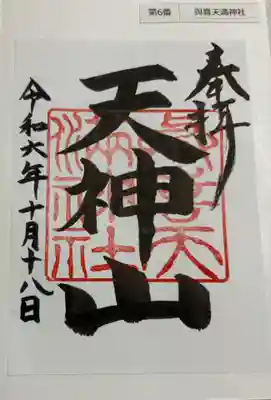 第6番
與喜天満神社
奉拝
天神山
與喜天満神社
令和六年十月十八日